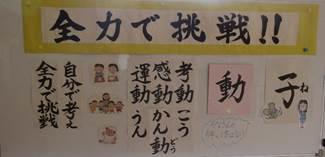 全力で挑戦!!
子ね
動
考動こう
感動かん動どう
運動うん
自分で考え
全力で挑戦